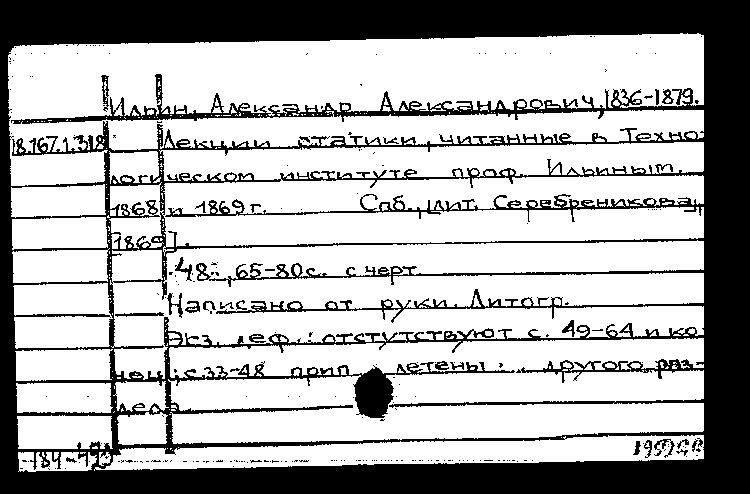 Ильин, Александр Александрович, 1836-1879.
18.167.1.318 Лекции статики, читанные в Техно-
логическом институте проф. Ильиным.
1868 и 1869 г. Спб., лит. Серебреникова,
[1869].
48., 65-80 с. с черт.
Написано от руки. Литогр.
Экз. деф.: отстутствуют с. 49-64 и ко-
нец; с. 33-48 прип летены из другого раз-
дела.
184-493